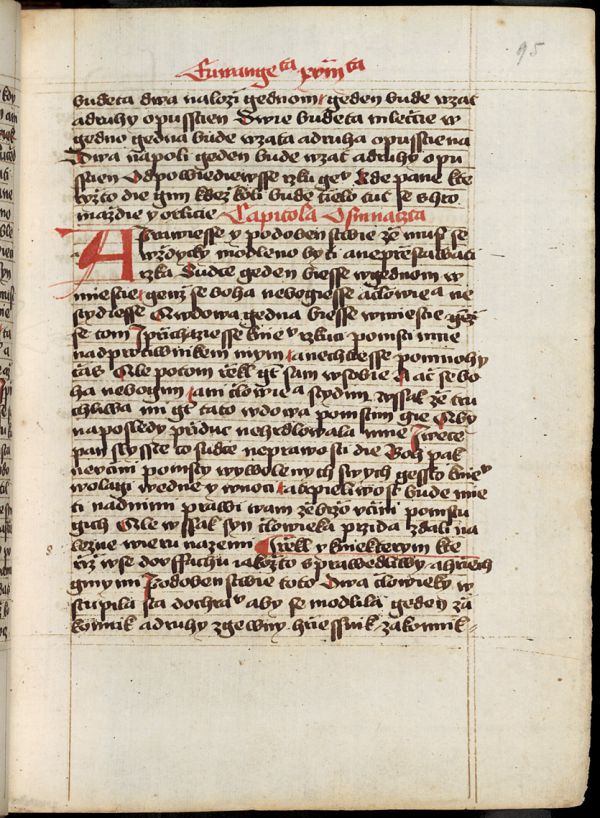 95
Ewangelia xviii ta
budeta dwa nalozi gednom geden bude wzat
adruhy opusstien Dwie budeta mleti w
gedno gedna bude wzata adruha opusstiena
Dwa napoli geden bude wzat adruhy opu
sstien Odpowiediewsse rzku gev Kde pane kte
ryzto die gim kdez koli bude tielo tut se shro
mazdie y orlicie Capitola Osmnaczta
A Prawiesse y podobenstwie ze musi se
wzdycky modleno byti aneprestawati
rzka Sudce geden biesse wgednom w
miestie genz se boha nebogiesse aclowieka ne
stydiesse Awdowa gedna biesse wmiestie gez
se tom prichaziesse knie v rzkuci pomsti mne
nadprotiwnikem mym anechtiesse pomnohy
czas Ale potom rzekl gt sam wsobie Ac se bo
ha nebogim ani clowieka stydim wssak ze tru
chliwa mi gt tato wdowa pomstim gie Aby
naposledy prziduc nehrdlowala mne I wece
pan slysste to sudce neprawosti die Boh pak
neucini pomsty wywolenych swych gessto knie v
wolagi wedne y wnoci atrpieliwost bude mie
ti nadnimi prawi wam zebrzo ucini pomstu
gich Ale wssak syn clowieka przida zdali na
lezne wieru nazemi Rzekl y kniekterym kte
rziz wse doussfachu iakozto sprawedliwy ahrziech
gmymi podobenstwie toto Dwa clowieky w
stupila sta dochra v aby se modlila geden za
konnik adruhy zgewny hriessnik zakonnik